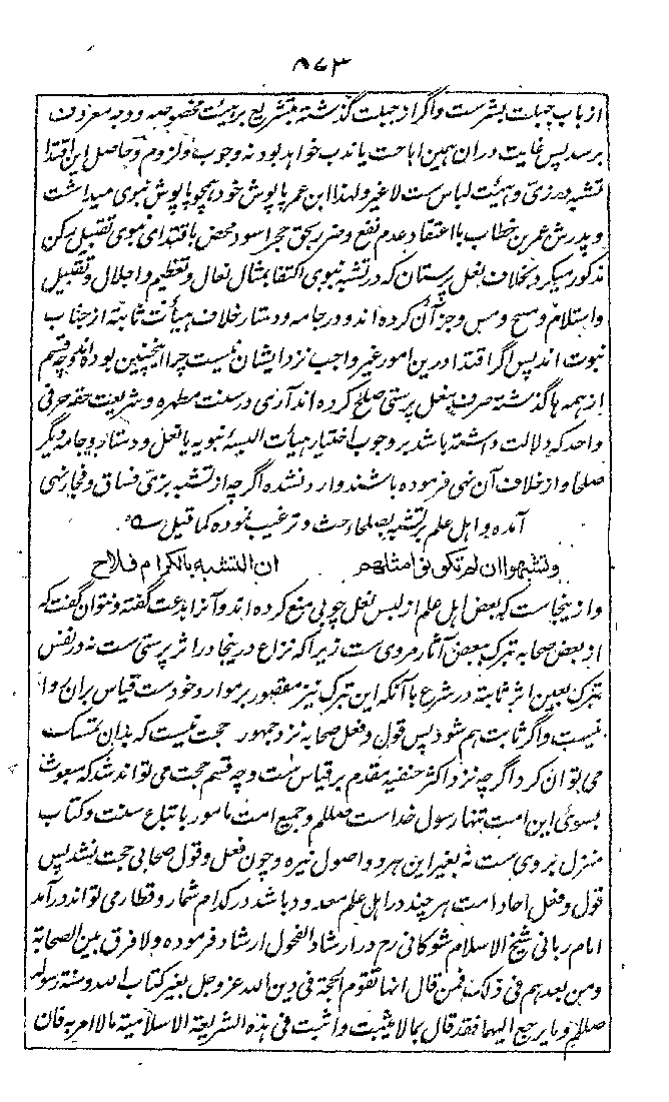 ۵۶۳
از باب جبلت بشرست و اگر از جبلت گذشته بتشریع بر هیئت مخصوصه و وجه معروف
برسد پس غایت دران همین اباحت یا ندب خواهد بود نه وجوب و لزوم و حاصل این اقتدا
تشبه در زی و هیئت لباس ست لا غیر و لهذا ابن عمر پاپوش خود همچو پاپوش نبوی میداشت
و پدرش عمر بن خطاب با اعتقاد عدم نفع و ضرر بحق حجر اسود محض باقتدای نبوی تقبیل رکن
مذکور میکرد بخلاف نعل پرستان که در تشبه نبوی اکتفا بمثال نعال و تعظیم و اجلال و تقبیل
و استلام و مسح و مس و جز آن کرده اند و در جامه و دستار خلاف هیأت ثابته از جناب
نبوت اند پس اگر اقتدا درین امور غیر واجب نزد ایشان نیست چرا اینچنین بوده اند و چه قسم
از همه ها گذشته صرف بر نعل پرستی صلح کرده اند آری در سنت مطهره و شریعت حقه حرفی
واحد که دلالت داشته باشد بر وجوب اختیار هیأت البسهٔ نبویه یا نعل و دستار و جامه دیگر
صلحا و از خلاف آن نهی فرموده باشند وارد نشده اگرچه از تشبه بزی فساق و فجار نهی
آمده و اهل علم بر تشبه بصلحاء حث و ترغیب نموده کما قیل ؎
وتشبهوا ان لم تکونوا مثلهم ان التشبه بالکرام فلاح
و از ینجاست که بعض اهل علم از لبس نعل چوبی منع کرده اند و آنرا بدعت گفته و نتوان گفت که
از بعض صحابه تبرک ببعض آثار مروی ست زیرا که نزاع درینجا در اثر پرستی ست نه در نفس
تبرک بعین اثر ثابته در شرع با آنکه این تبرک نیز مقصور بر موارد خودست قیاس بران روا
نیست و اگر ثابت هم شود پس قول و فعل صحابه نزد جمهور حجت نیست که بدان تمسک
می توان کرد اگرچه نزد اکثر حنفیه مقدم بر قیاس ست و چه قسم حجت می تواند شد که مبعوث
بسوی این امت تنها رسول خداست صللم و جمیع امت مامور باتباع سنت و کتاب
منزل بروی ست نه بغیر این هر دو اصول نیره و چون فعل و قول صحابی حجت نشد پس
قول و فعل احاد امت هر چند در اهل علم معدود باشد در کدام شمار و قطار می تواند در آمد
امام ربانی شیخ الاسلام شوکانی رح در ارشاد الفحول ارشاد فرموده ولا فرق بین الصحابة
ومن بعدهم فی ذلک فمن قال انها تقوم الحجة فی دین الله عز وجل بغیر کتاب الله وسنة رسوله
صللم وما یرجع الیهما فقد قال بما لا یثبت واثبت فی هذه الشریعة الاسلامیة ما لا امر به فان